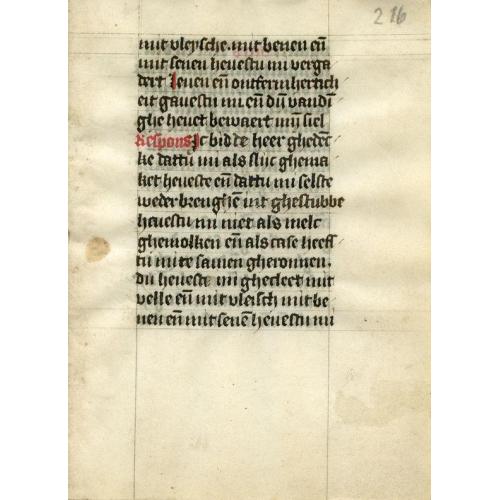 216
mit vleysche. mit benen en̄
mit senen hevestu mi verga
dert Leven en̄ ontfermhertich
eit gavestu mi en̄ dijn vandi
ghe hevet bewaert mijn siel
Respons Ic bidde heer ghedenc
ke dattu mi als slijc ghema
ket heveste en̄ dattu mi selste
weder brenghen̄ int ghestubbe
hevestu mi niet als melc
ghemolken en̄ als case heefs
tu mi te samen gheronnen.
du heveste mi ghecleet mit
velle en̄ mit vleisch mit be
nen en̄ mit senē hevestu mi